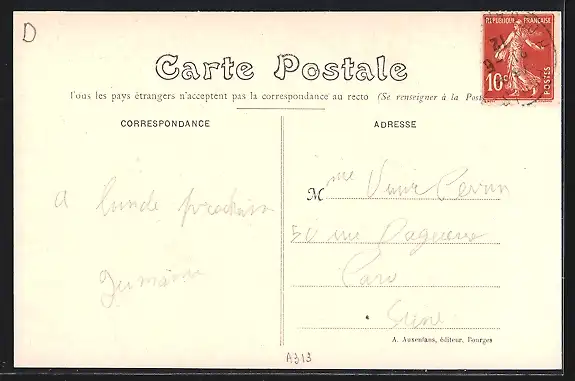 D
RÉPUBLIQUE FRANÇAISE
10c
POSTES
Carte Postale
Tous les pays étrangers n'acceptent pas la correspondance au recto (Se renseigner à la Post
CORRESPONDANCE
ADRESSE
A lundi prochain
Mme
50 rue
Seine
A. Auxenfans, éditeur, Bourges
A313